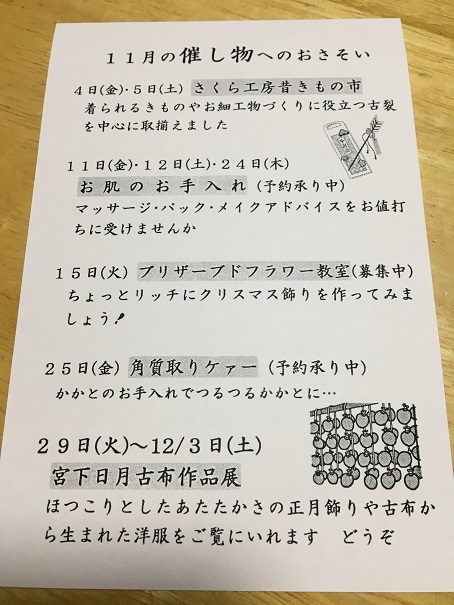 11月の催し物へのおさそい
4日(金)・5日(土) さくら工房昔きもの市
着られるきものやお細工物づくりに役立つ古裂
を中心に取揃えました
11日(金)・12日(土)・24日(木)
お肌のお手入れ (予約承り中)
マッサージ・パック・メイクアドバイスをお値打
ちに受けませんか
15日(火) プリザーブドフラワー教室(募集中)
ちょっとリッチにクリスマス飾りを作ってみま
しょう!
25日(金) 角質取りケァー (予約承り中)
かかとのお手入れでつるつるかかとに…
29日(火)～12/3日(土)
宮下日月古布作品展
ほつこりとしたあたたかさの正月飾りや古布か
ら生まれた洋服をご覧にいれます どうぞ